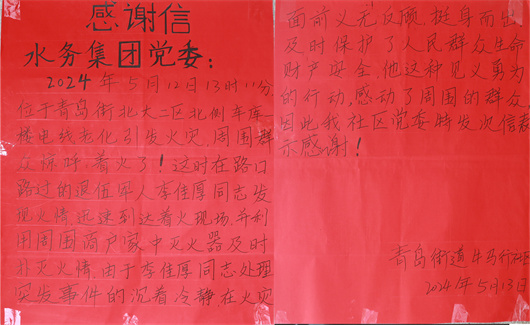 感谢信
水务集团党委:
2024年5月12日13时11分,
位于青岛街北大二区北侧车库
楼电线老化引发火灾,周围群
众惊呼,着火了!这时在路口
路过的退伍军人李佳厚同志发
现火情迅速到达着火现场,并利
用周围商户家中灭火器及时
扑灭火情,由于李佳厚同志处理
突发事件的沉着冷静在火灾
面前义无反顾,挺身而出
及时保护了人民群众生命
财产安全,他这种见义勇为
的行动,感动了周围的群众
因此我社区党委特发次信表
示感谢!
青岛街道牛马行社区
2024年5月13日